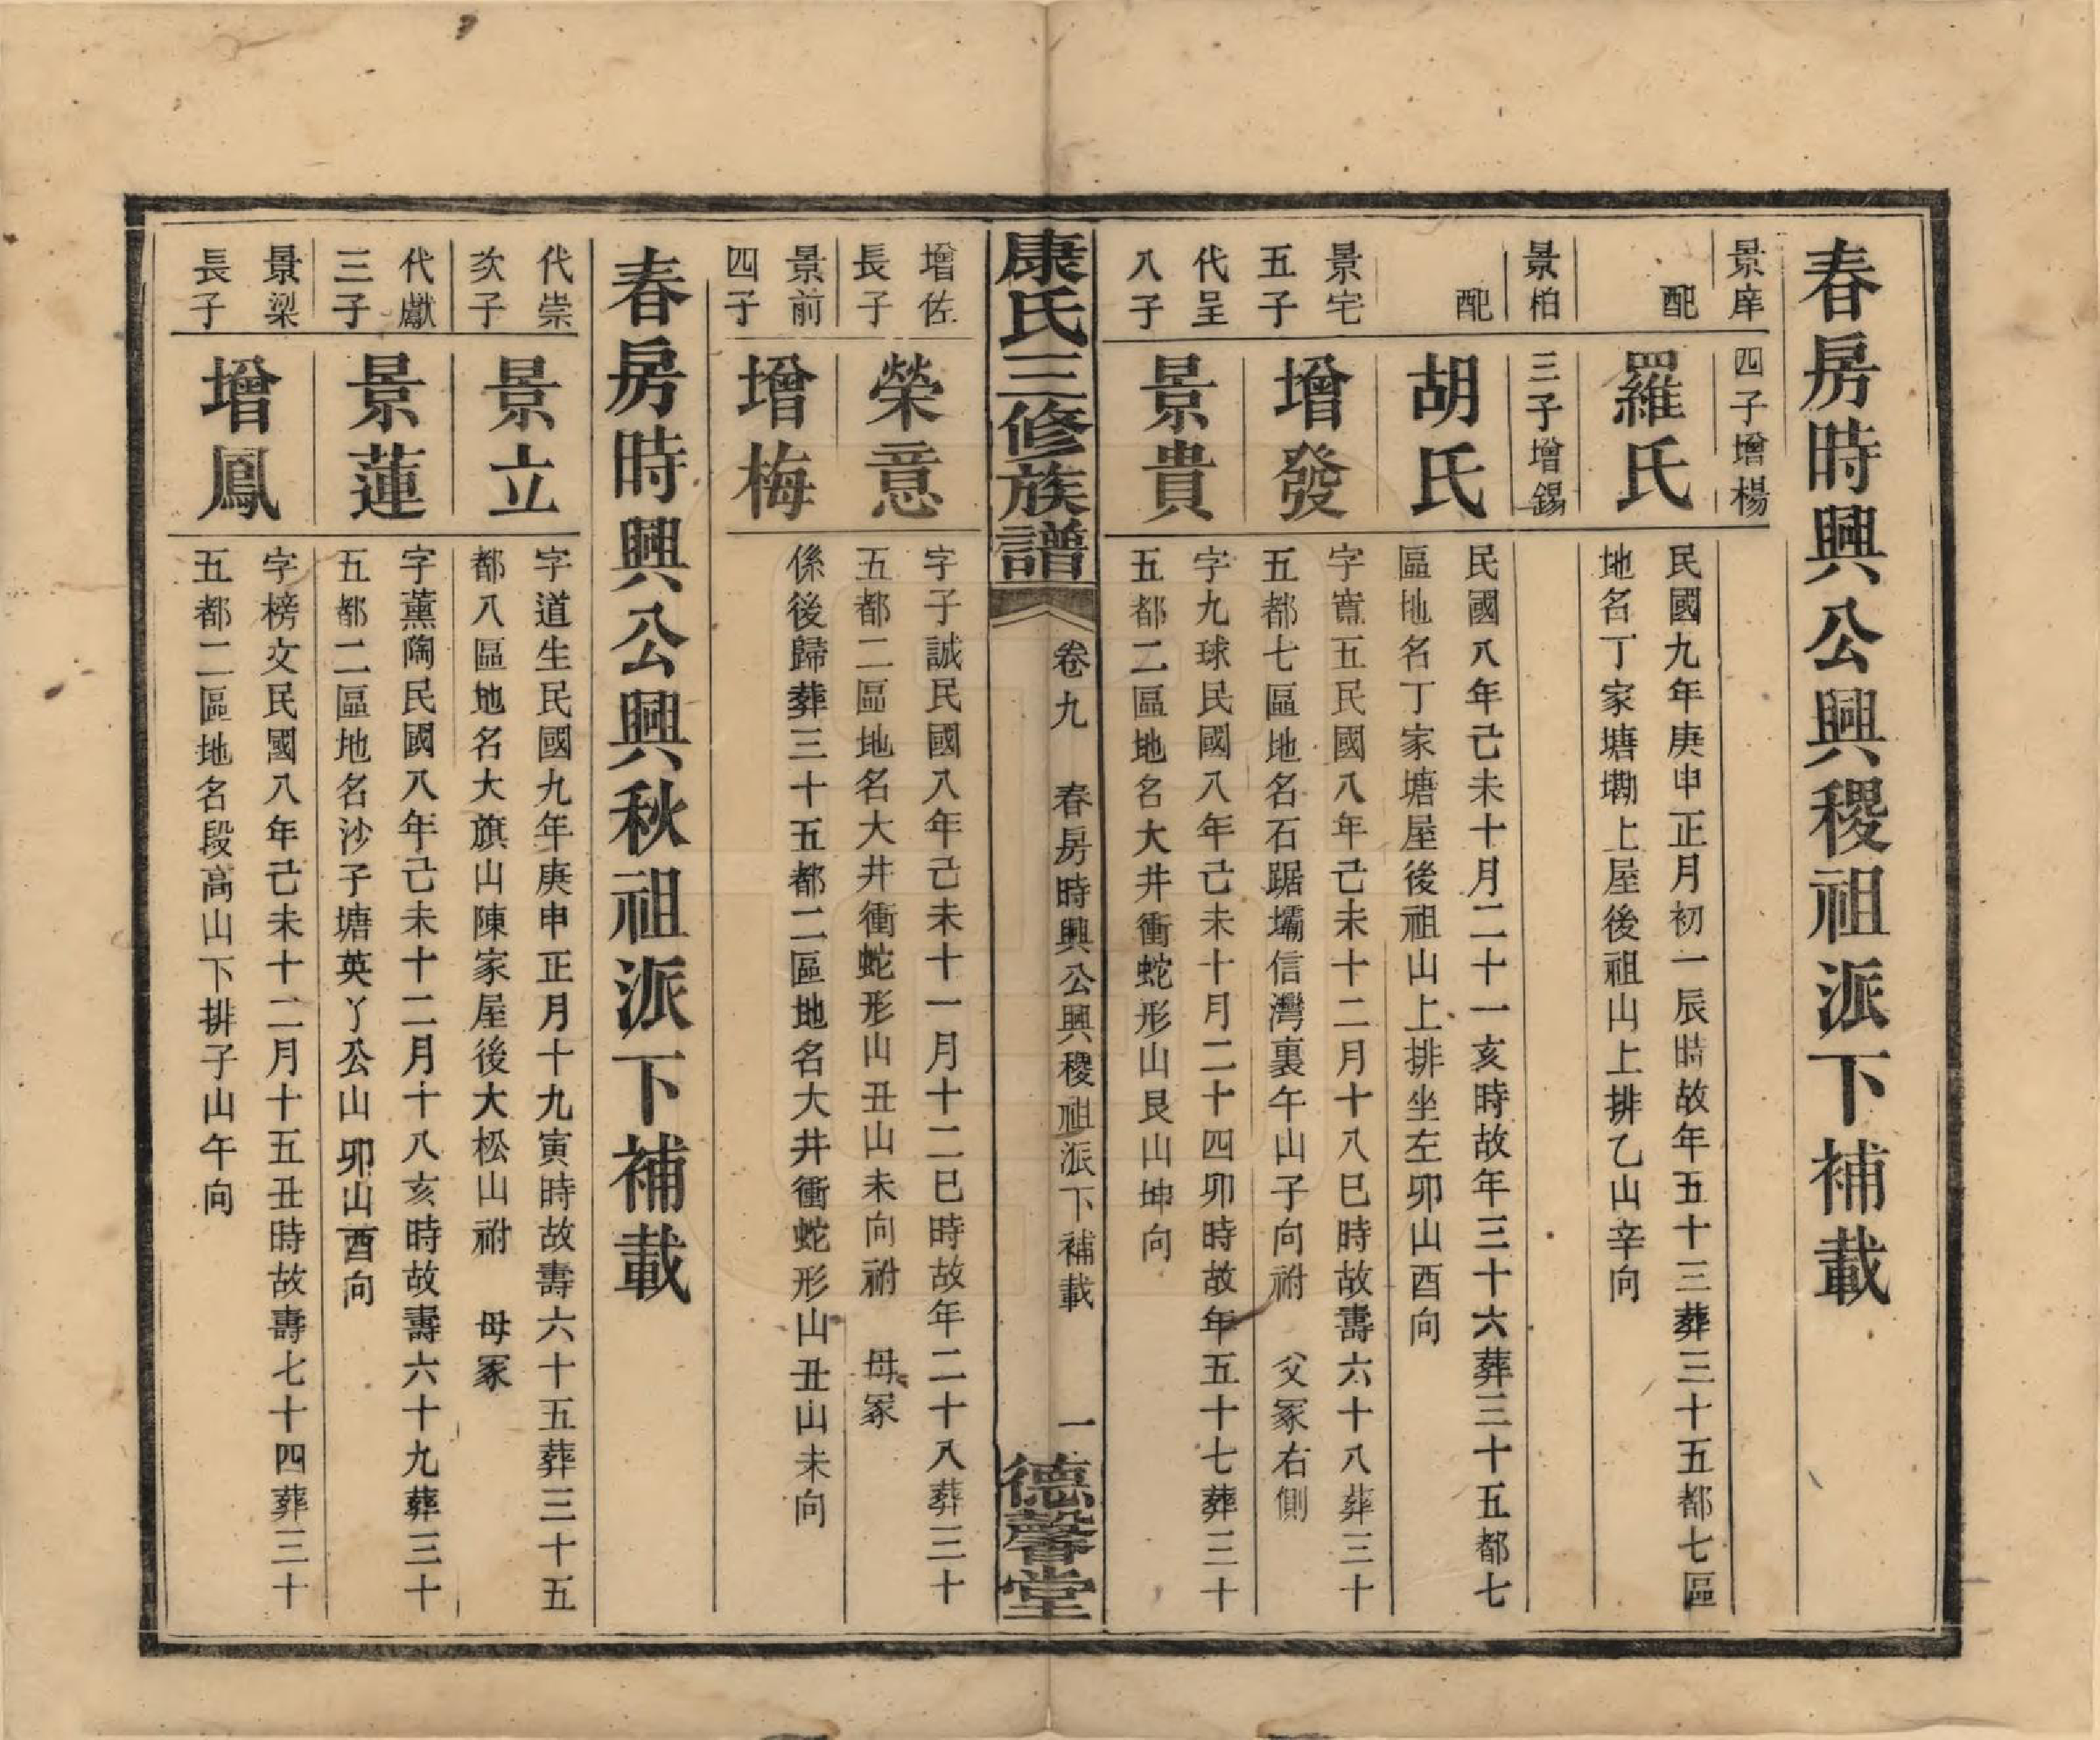 春房時興公興稷祖派下補載
景庠
四子增楊
配
羅氏
民國九年庚申正月初一辰時故年五十三葬三十五都七區
地名丁家塘墈上屋後祖山上排乙山辛向
景柏
三子增錫
配
胡氏
民國八年己未十月二十一亥時故年三十六葬三十五都七
區地名丁家塘屋後祖山上排坐左卯山酉向
景宅
五子
增發
字寶五民國八年己未十二月十八巳時故壽六十八葬三十
五都七區地名石踞壩信灣裏午山子向祔 父冢右側
代呈
八子
景貴
字九球民國八年己未十月二十四卯時故年五十七葬三十
五都二區地名大井衝蛇形山艮山坤向
康氏三修族譜
卷九 春房時興公興稷祖派下補載 一
德馨堂
增佐
長子
榮意
字子誠民國八年己未十一月十二巳時故年二十八葬三十
五都二區地名大井衝蛇形山丑山未向祔 母冢
景前
四子
增梅
係後歸葬三十五都二區地名大井衝蛇形山丑山未向
春房時興公興秋祖派下補載
代崇
次子
景立
字道生民國九年庚申正月十九寅時故壽六十五葬三十五
都八區地名大旗山陳家屋後大松山祔 母冢
代獻
三子
景蓮
字薰陶民國八年己未十二月十八亥時故壽六十九葬三十
五都二區地名沙子塘英丫公山卯山酉向
景梁
長子
增鳳
字榜文民國八年己未十二月十五丑時故壽七十四葬三十
五都二區地名段高山下排子山午向